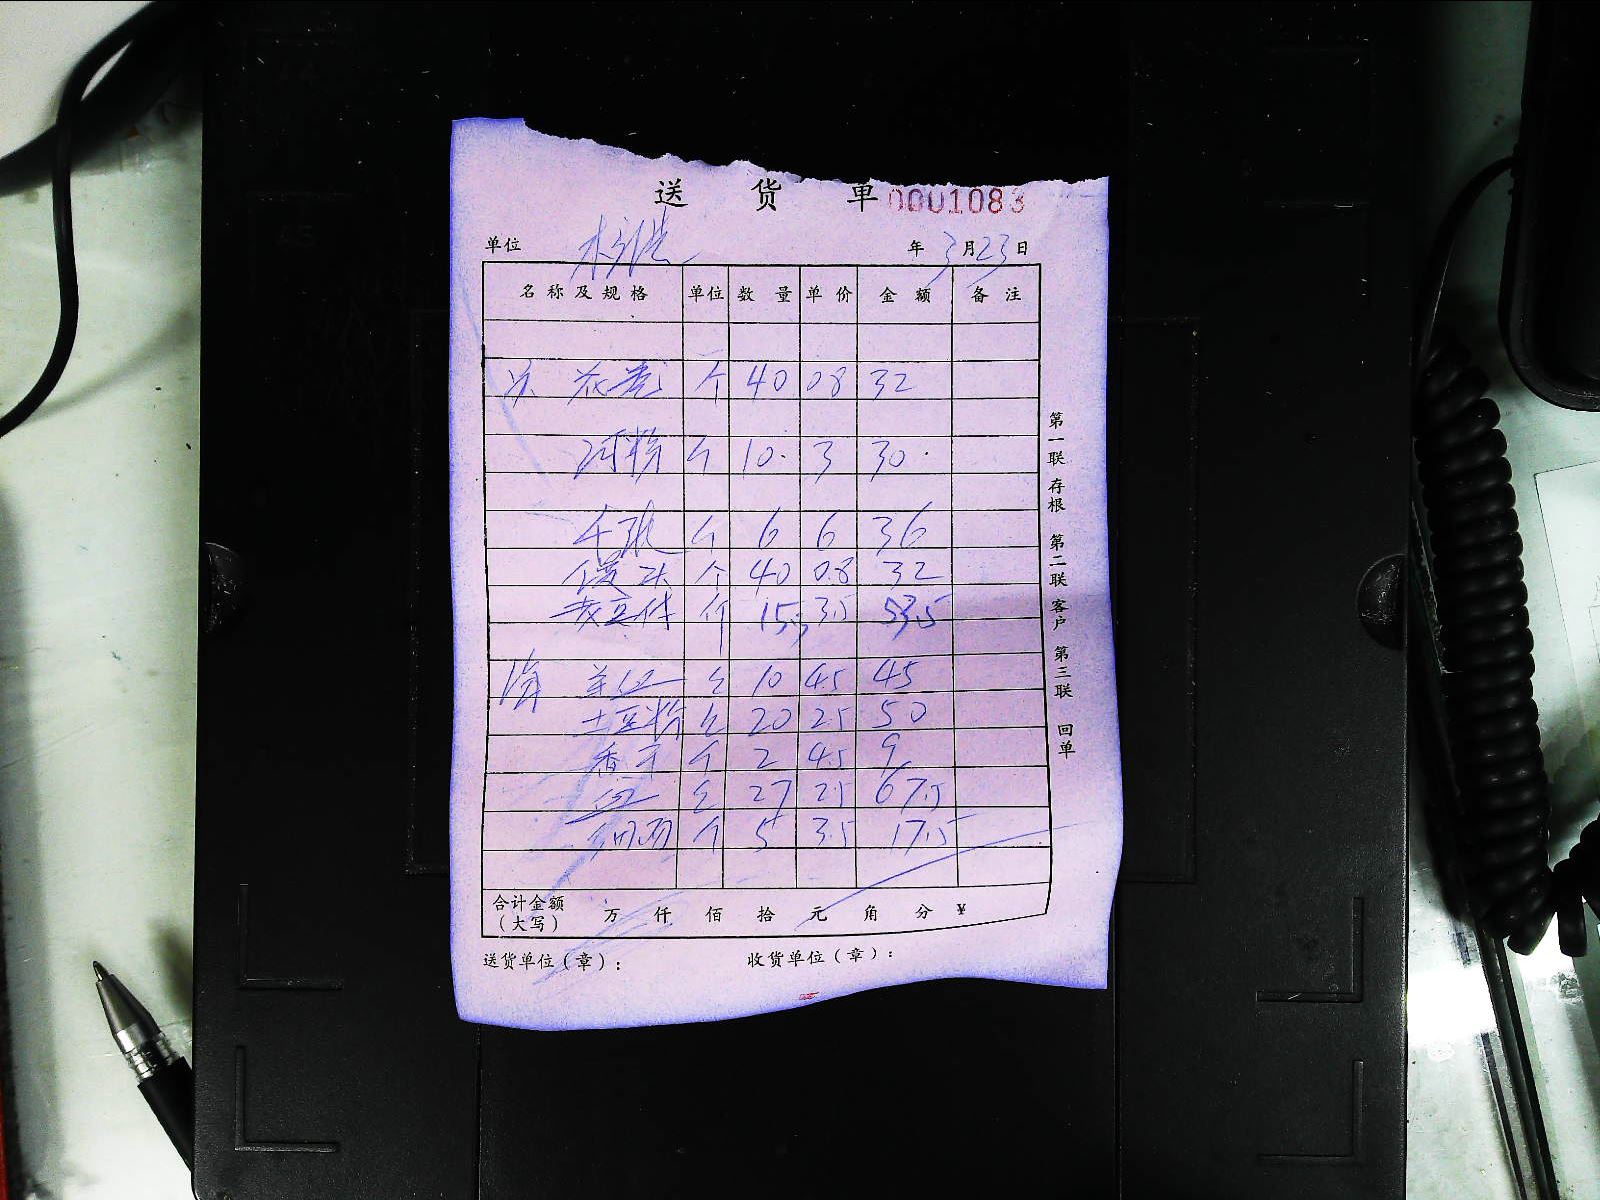 送货单 0001083
单位 年 3月23日
名称及规格 单位 数量 单价 金额 备注
花卷 个 40 0.8 32
河粉 个 10 3 30
个 6 6 36
馒头 个 40 0.8 32
个 15 3.5 53.5
10 4.5 45
土豆粉 20 2.5 50
香干 个 2 4.5 9
27 2.5 67.5
个 5 3.5 17.5
合计金额
(大写) 万 仟 佰 拾 元 角 分 ¥
送货单位(章): 收货单位(章):
第一联存根 第二联客户 第三联回单